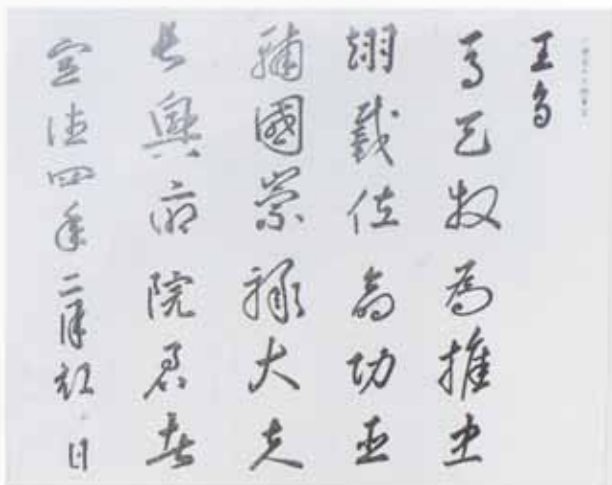 王旨
馬天牧為推忠
翊戴佐命功臣
輔國崇祿大夫
長興府院君者
宣德四年二月初 日